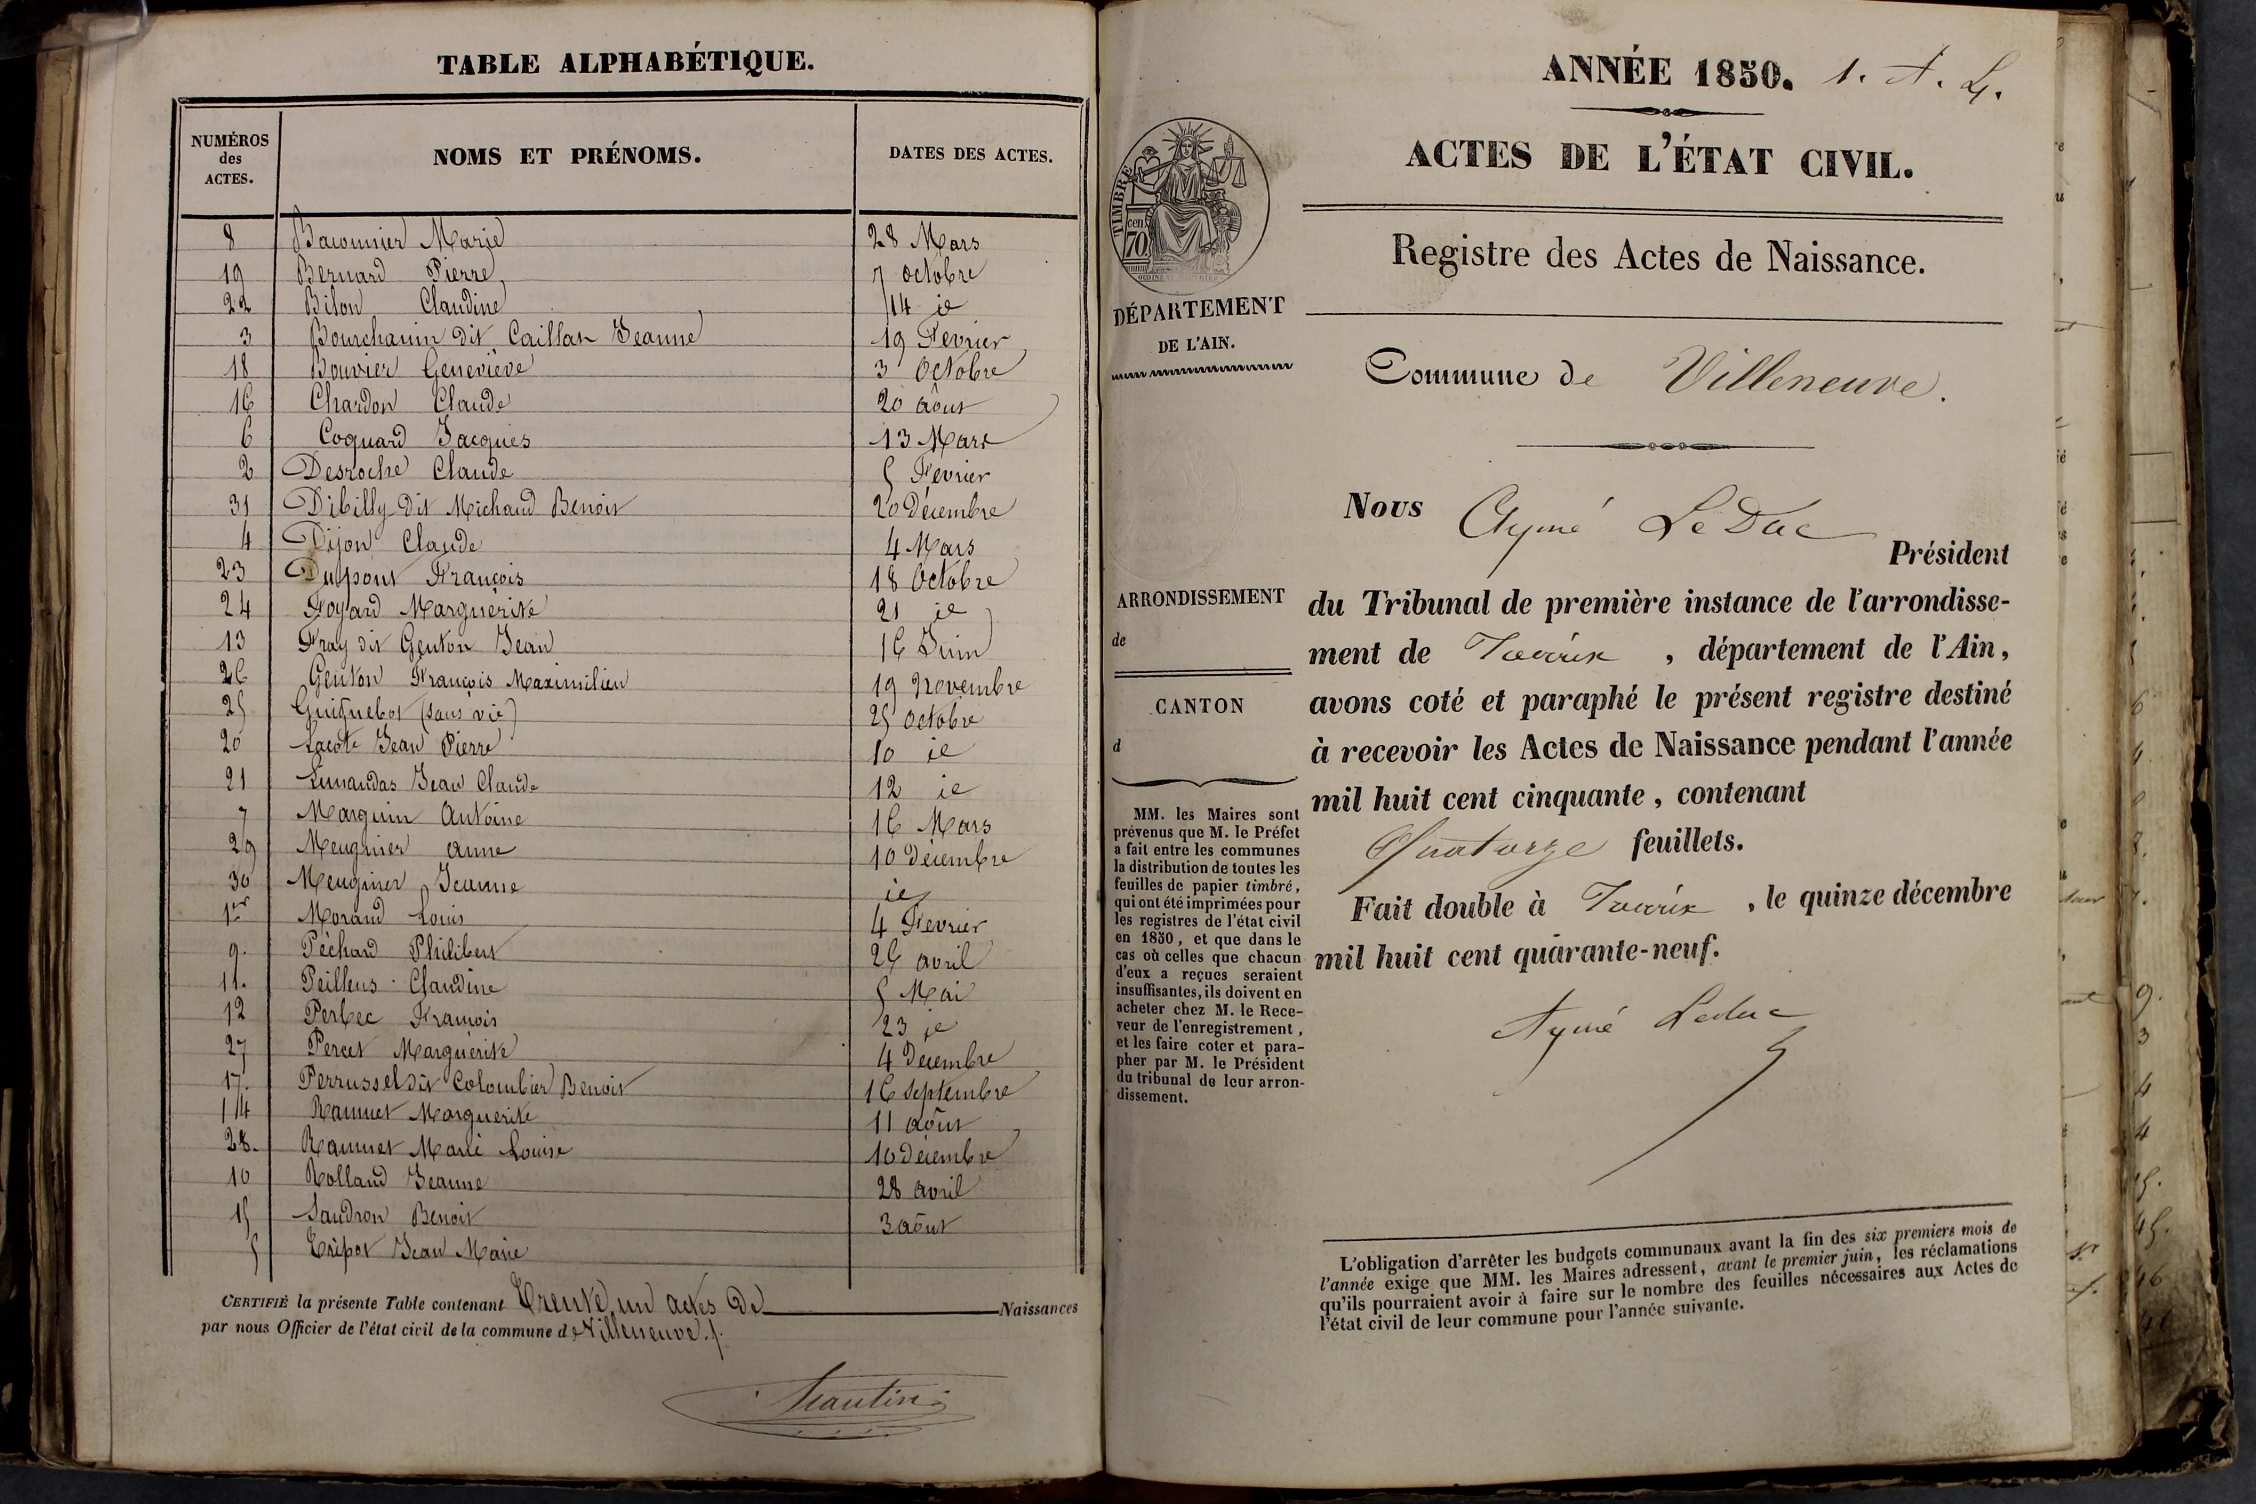 TABLE ALPHABÉTIQUE.
NUMÉROS des ACTES. NOMS ET PRÉNOMS. DATES DES ACTES.
8 Marie 28 Mars
19 Bernard Pierre 7 octobre
22 Bilon Claudine 14 ie
3 Bourchanin dit Caillat Jeanne 19 Fevrier
18 Bouvier Geneviève 3 Octobre
16 Chardon Claude 20 août
6 Coquard Jacques 13 Mars
2 Desroche Claude 5 Fevrier
31 Dibilly dit Michaud Benoit 20 Décembre
4 Dijon Claude 4 Mars
23 Dupont François 18 Octobre
24 Foyard Marguerite 21 ie
13 Fray dit Genton Jean 16 Juin
26 Genton François Maximilien 19 Novembre
25 Guiguebot (sans vie) 25 octobre
20 Lacote Jean Pierre 10 ie
21 Limandas Jean Claude 12 ie
7 Marguin Antoine 16 Mars
29 Meugnier anne 10 Décembre
30 Meugnier Jeanne ie
1er Morand Louis 4 Fevrier
9. Péchard Philibert 25 avril
11. Peilleus Claudine 5 Mai
12 Perbec François 23 ie
27 Percet Marguerite 4 Décembre
17. Perrussel dit Colombier Benoit 16 septembre
14 Ramuet Marguerite 11 août
28. Ramuet Marie Louise 10 décembre
10 Rolland Jeanne 28 avril
15 Sandron Benoit 3 août
5 Jean Marie
CERTIFIÉ la présente Table contenant Trente un actes de Naissances
par nous Officier de l'état civil de la commune de Villeneuve.
ANNÉE 1850. 1. A. L.
ACTES DE L'ÉTAT CIVIL.
Registre des Actes de Naissance.
TIMBRE
70 cen.
DÉPARTEMENT
DE L'AIN.
Commune de Villeneuve.
Nous Aymé LeDuc
Président
ARRONDISSEMENT
de
CANTON
d
du Tribunal de première instance de l'arrondisse-
ment de Trévoux, département de l'Ain,
avons coté et paraphé le présent registre destiné
à recevoir les Actes de Naissance pendant l'année
mil huit cent cinquante, contenant
Quatorze feuillets.
Fait double à Trévoux, le quinze décembre
mil huit cent quarante-neuf.
Aymé Leduc
MM. les Maires sont
prévenus que M. le Préfet
a fait entre les communes
la distribution de toutes les
feuilles de papier timbré,
qui ont été imprimées pour
les registres de l'état civil
en 1850, et que dans le
cas où celles que chacun
d'eux a reçues seraient
insuffisantes, ils doivent en
acheter chez M. le Rece-
veur de l'enregistrement,
et les faire coter et para-
pher par M. le Président
du tribunal de leur arron-
dissement.
L'obligation d'arrêter les budgets communaux avant la fin des six premiers mois de
l'année exige que MM. les Maires adressent, avant le premier juin, les réclamations
qu'ils pourraient avoir à faire sur le nombre des feuilles nécessaires aux Actes de
l'état civil de leur commune pour l'année suivante.